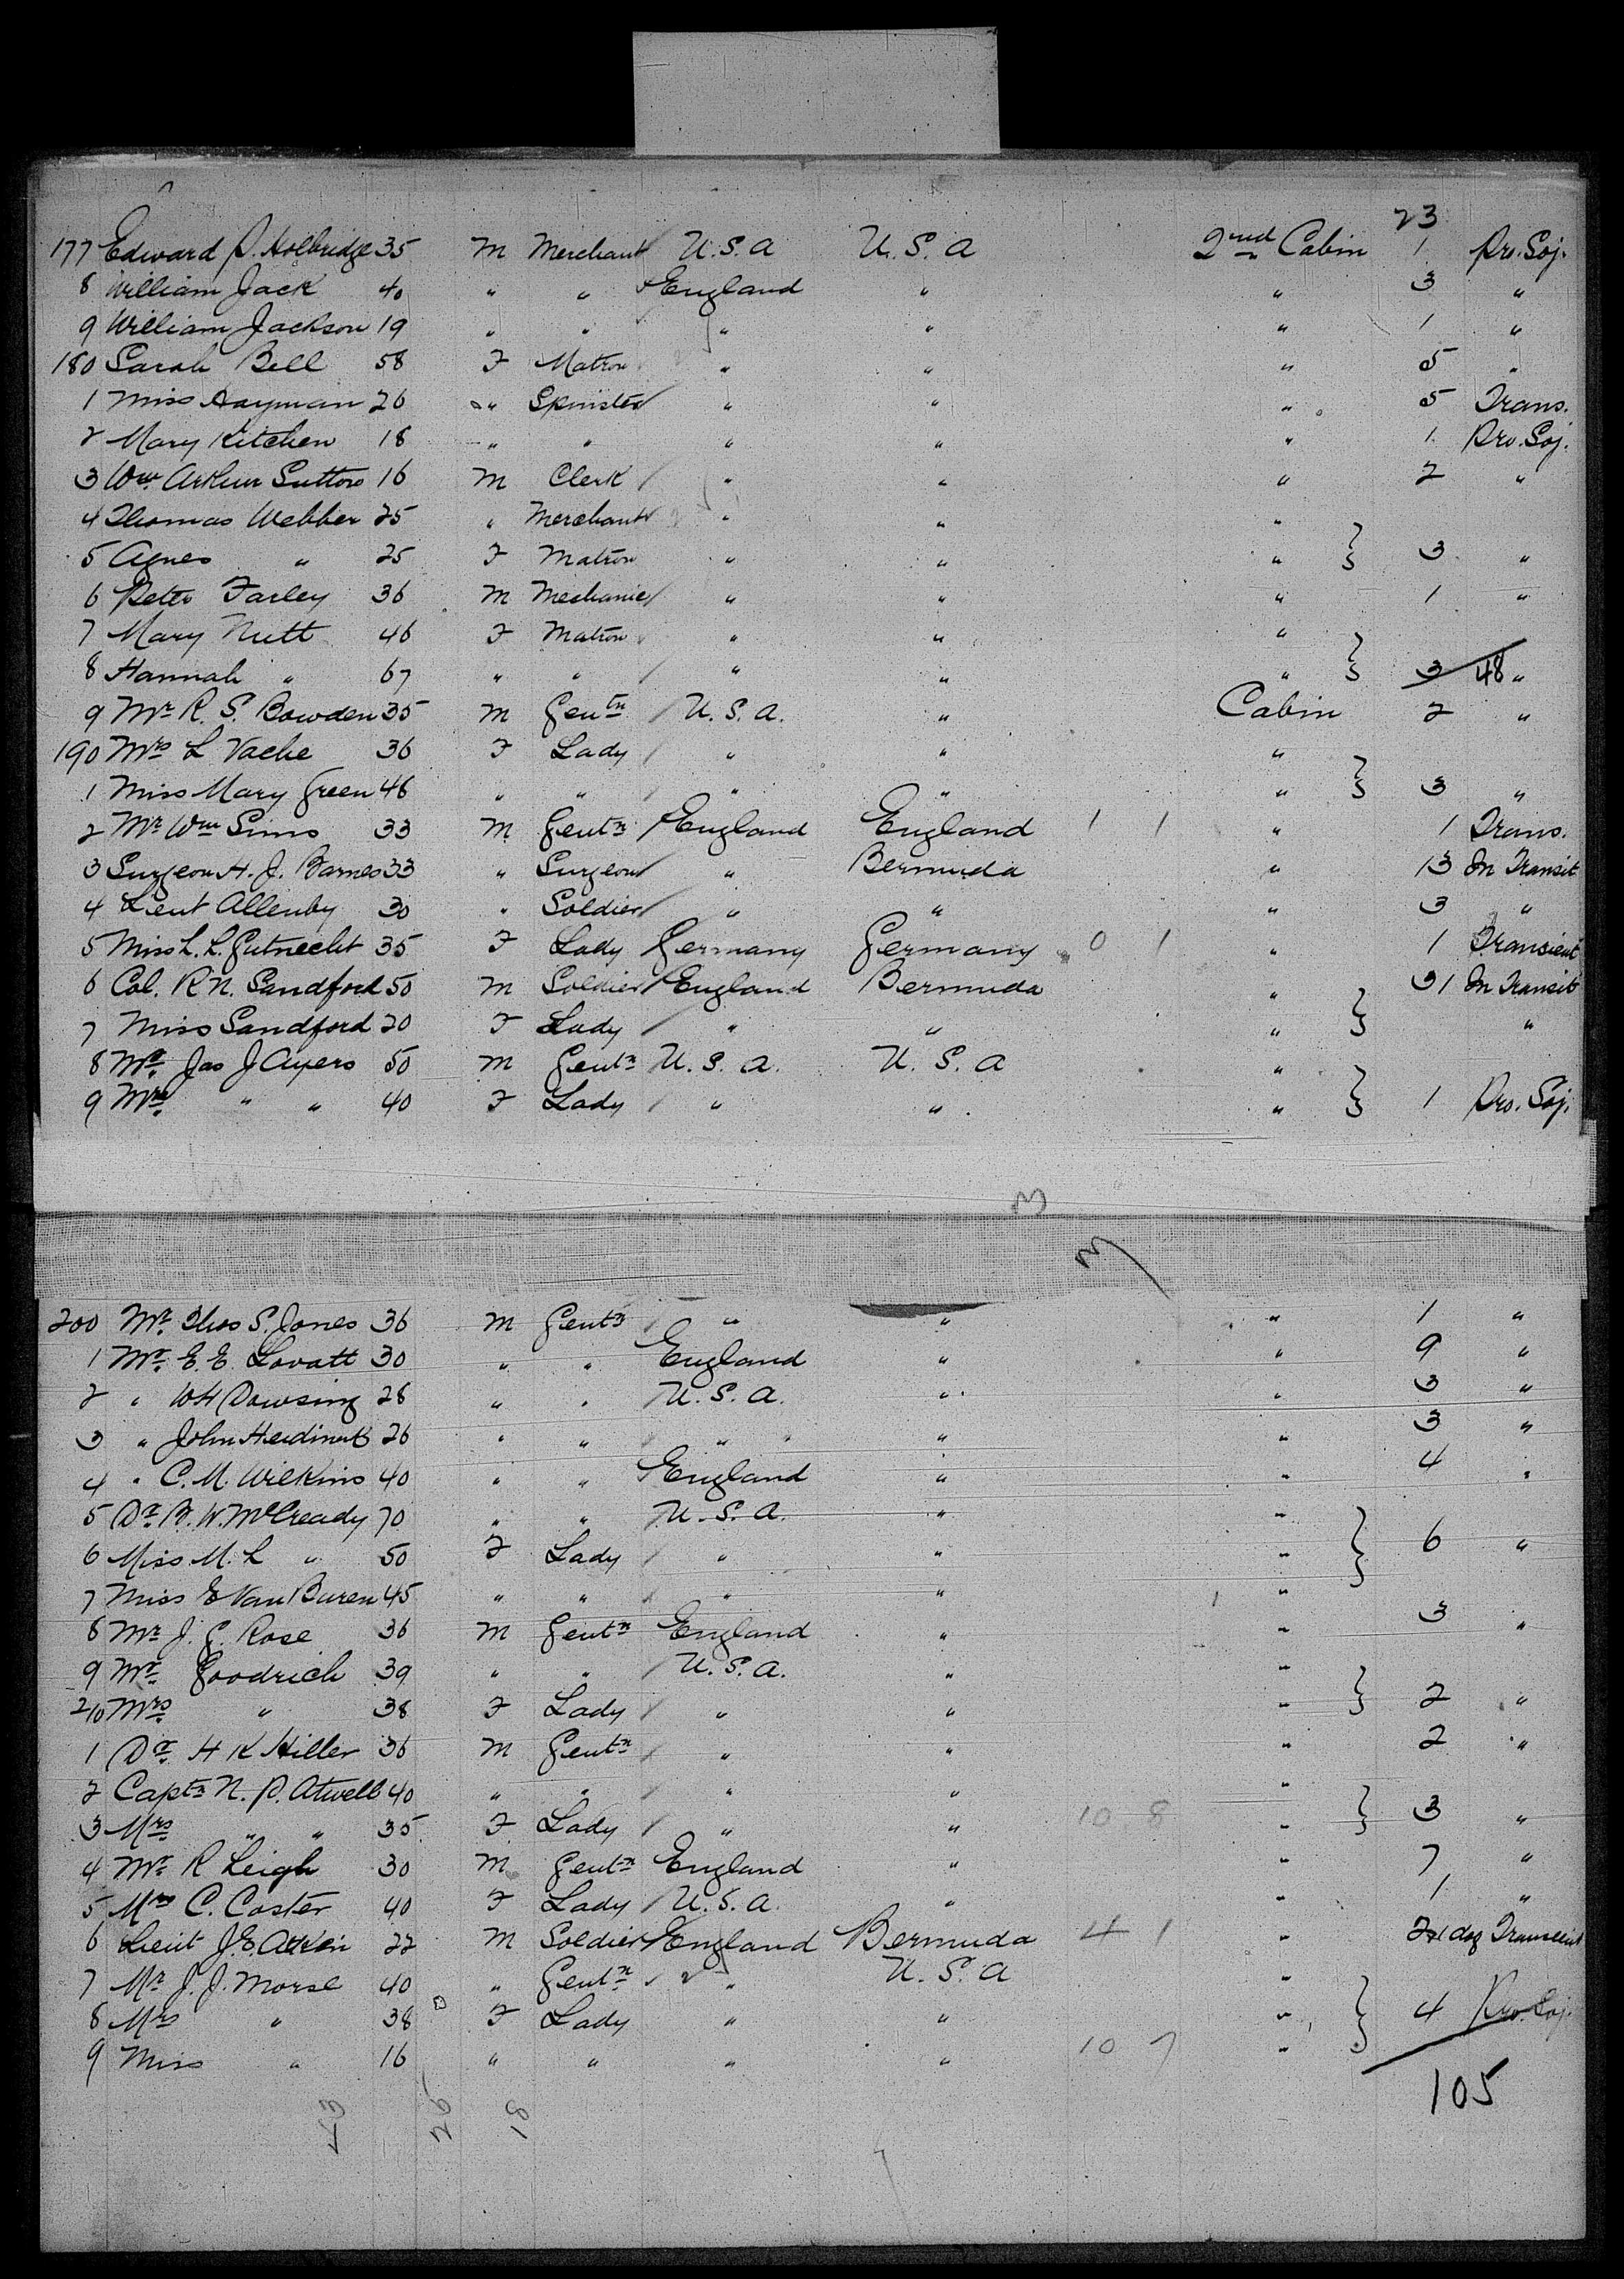 23
177 Edward P. Holbridge 35 M Merchant U.S.A U.S.A 2nd Cabin 1 Pro. Soj.
8 William Jack 40 " " England " " 3 "
9 William Jackson 19 " " " " " 1 "
180 Sarah Bell 58 F Matron " " " 5 "
1 Miss Hayman 26 " Spinster " " " 5 Trans.
2 Mary Kitchen 18 " " " " " 1 Pro. Soj.
3 Wm. Arthur Sutton 16 M Clerk " " " 2 "
4 Thomas Webber 25 " Merchant " " "
5 Agnes " 25 F Matron " " " } 3 "
6 Peter Farley 36 M Mechanic " " " 1 "
7 Mary Nutt 46 F Matron " " "
8 Hannah " 67 " " " " " } 3 48 "
9 Mr R. S. Bowden 35 M Gentn U.S.A. " Cabin 2 "
190 Mrs L Vache 36 F Lady " " "
1 Miss Mary Green 46 " " " " " } 3 "
2 Mr Wm Sims 33 M Gentn England England 1 1 " 1 Trans.
3 Surgeon H. J. Barnes 33 " Surgeon " Bermuda " 13 In Transit
4 Lieut Allenby 30 " Soldier " " " 3 "
5 Miss L. L. Gutnecht 35 F Lady Germany Germany 0 1 " 1 Transient
6 Col. R N. Sandford 50 M Soldier England Bermuda " 31 In Transit
7 Miss Sandford 20 F Lady " " " } "
8 Mr. Jas J Ayers 50 M Gentn U.S.A. U.S.A "
9 Mrs. " " 40 F Lady " " " } 1 Pro. Soj.
3
3
200 Mr. Thos S. Jones 36 M Gentn " " " 1 "
1 Mr. E. E. Lovatt 30 " " England " " 9 "
2 " WH Dowsing 28 " " U.S.A. " " 3 "
3 " John 26 " " " " " 3 "
4 " C. M. Wilkins 40 " " England " " 4 "
5 Dr. B. W. McCready 70 " " U.S.A. " "
6 Miss M. L " 50 F Lady " " " } 6 "
7 Miss E Van Buren 45 " " " " "
8 Mr J. G. Rose 36 M Gentn England " " 3 "
9 Mr. Goodrich 39 " " U.S.A. " "
210 Mrs. " 38 F Lady " " " } 2 "
1 Dr. H K Hiller 36 M Gentn " " " 2 "
2 Captn N. P. Atwell 40 " " " " "
3 Mrs " " 35 F Lady " " 10 8 " } 3 "
4 Mr. R Leigh 30 M Gentn England " " 7 "
5 Mrs C. Coster 40 F Lady U.S.A. " " 1 "
6 Lieut J. E. 22 M Soldier England Bermuda 4 1 " Transcient
7 Mr J. J. Morse 40 " Gentn " U.S.A "
8 Mrs " 38 F Lady " " " } 4 Pro. Soj.
9 Miss " 16 " " " " 10 7 "
105
43 26 18